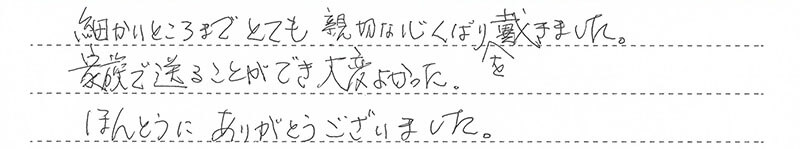 細かいところまでとても親切な心くばりを戴きました。
家族で送ることができ大変よかった.
ほんとうにありがとうございました。